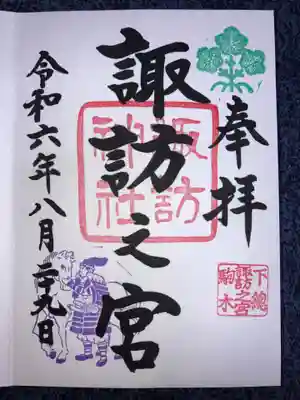 奉拝
諏訪之宮
諏訪
神社
令和六年八月二十九日
下總
諏訪之宮
駒木